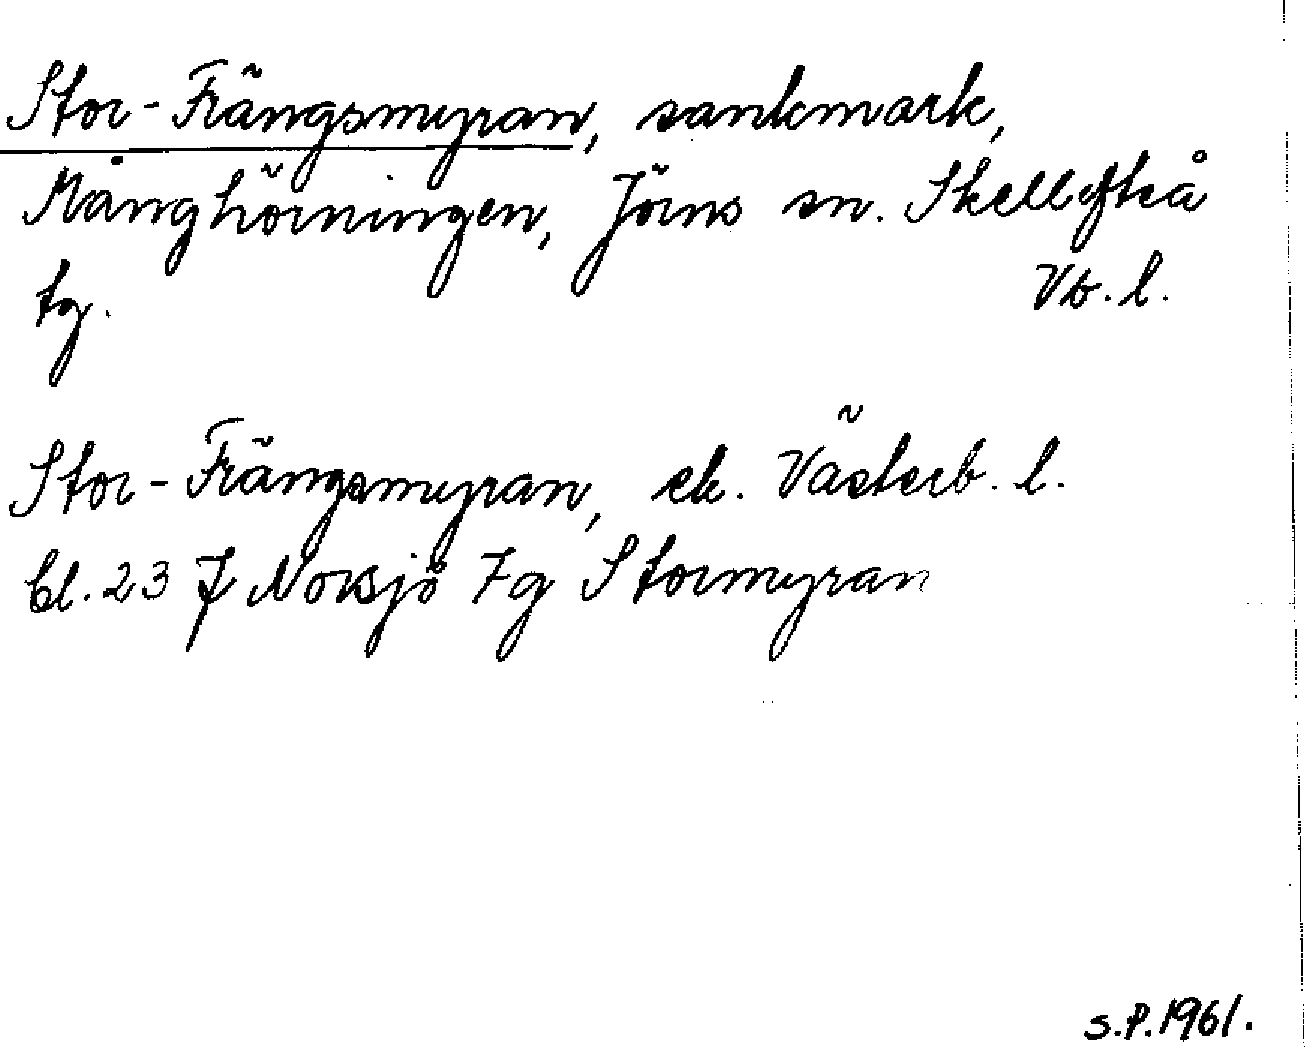 Stor-Frängsmyran, sankmark,
Månghörningen, Jörns sn. Skellefteå
tg. Vb. l.
Stor-Frängsmyran, ek. Västerb. l.
bl. 23 J Norsjö 7g Stormyran
S.P. 1961.